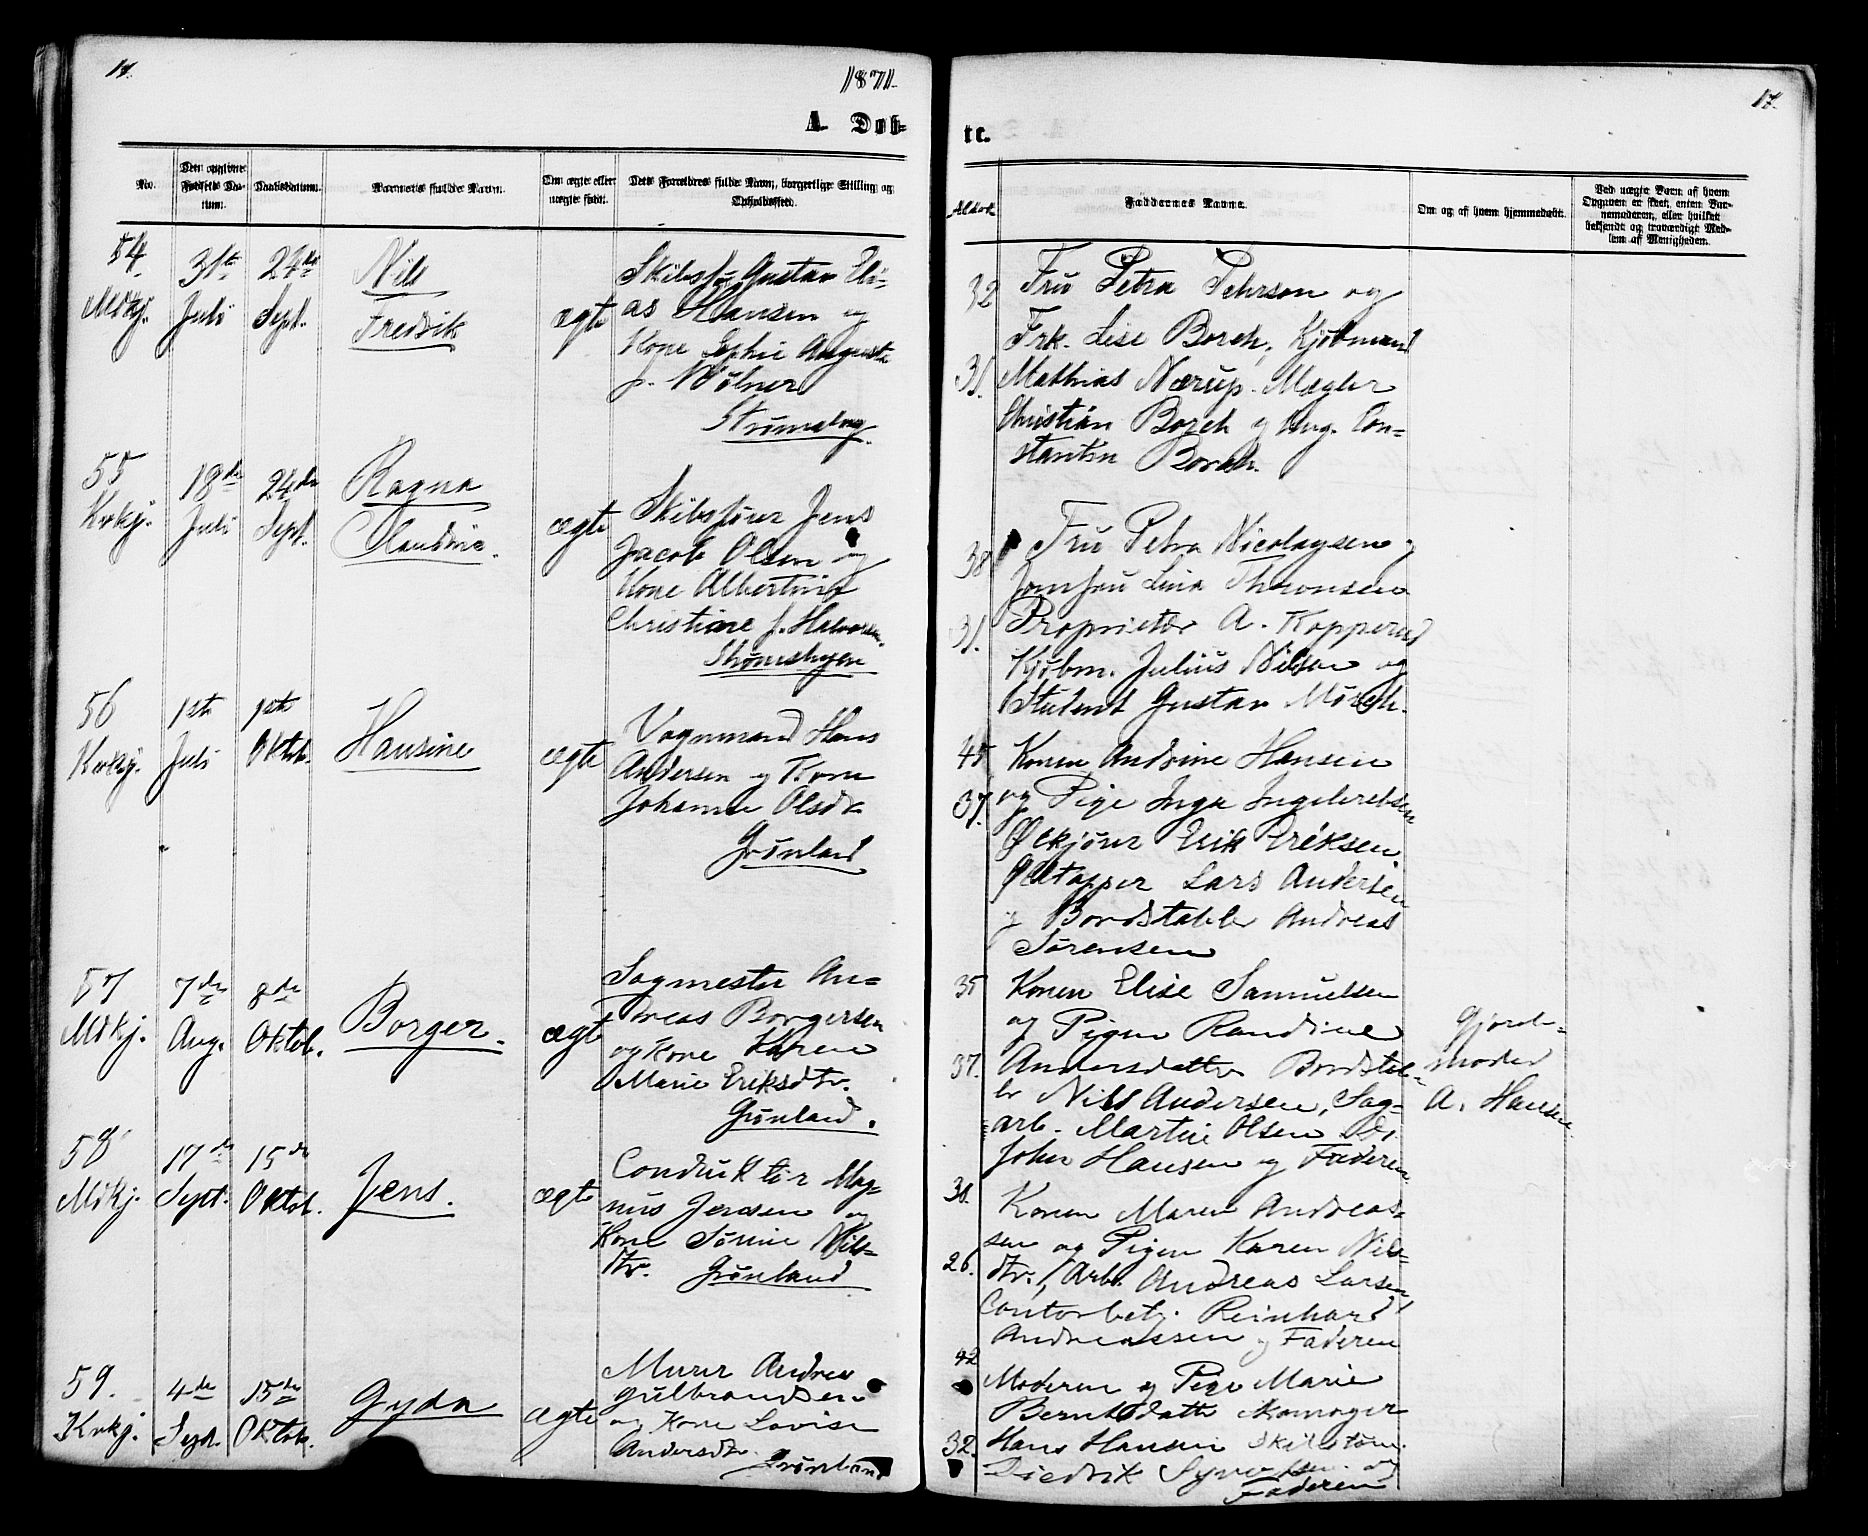 17.
1871.
A. Døb-
No.
Den opgivne Fødsels Datum.
Daabsdatum.
Barnets fulde Navn.
Om ægte eller uægte født.
Dets Forældres fulde Navn, borgerlige Stilling og Opholdssted.
54
Mdkj.
31te
Juli
24de
Sept.
Nils
Fredrik
ægte
Skibsfø. Gustav Eli-
as Hansen og
Kone Sophie Augusta
f. Wølner
Strømsbog.
55
Kvkj.
18de
Juli
24de
Sept.
Ragna
Claudine.
ægte
Skibsfører Jens
Jacob Olsen og
Kone Albertine
Christine f. Halvorsen.
56
Kvkj.
1ste
Juli
1ste
Oktob.
Hansine
ægte
Vognmand Hans
Andersen og Kone
Johanne Olsdtr
Grønland
57
Mdkj.
7de
Aug.
8de
Oktob.
Borger.
ægte
Sagmester An-
dreas Borgersen
og Kone Karen
Marie Eriksdtr.
Grønland.
58
Mdkj.
17de
Sept.
15de
Oktob.
Jens.
ægte
Conduktør Mag-
nus Jensen og
Kone Sørine Nils-
dtr. Grønland
59.
Kvkj.
4de
Sept.
15de
Oktob.
Gyda
ægte
Murer Andreas
Gulbrandsen
og Kone Lovise
Andersdtr.
Grønland
17.
te.
Alder
Faddernes Navne.
Om og af hvem hjemmedøbt.
Ved uægte Barn af hvem Opgaven er skeet, enten Barnemoderen, eller hvilket bekjendt og troværdigt Medlem af Menigheden.
32
Fru Petra Pehrson og
Frk. Lise Borch, Kjøbmand
31.
Mathias Nærup. Mægler
Christian Borch og Aug. Con-
stantin Borch.
38
Fru Petra Nicolaysen og
Jomfru Lina Thronsen
31.
Proprietær A. Kopperud
Kjøbm. Julius Nilsen og
Student Gustav Mørch.
45
Konen Andrine Hansen
37.
og Pige Inga Ingebretsen
Ølkjører Erik Eriksen
Øltapper Lars Andersen
og Bordstabler Andreas
Sørensen
35
Konen Elise Samuelsen
og Pigen Randine
37.
Andersdatter Bordstab-
ler Nils Andersen, Sag-
arb. Martin Olsen Do.
Johan Hansen og Faderen
Gjorde-
moder
A. Hansen.
31.
Konen Maren Andreas-
sen og Pigen Karen Nils-
26.
dtr., Arb. Andreas Larsen,
Contorbetj. Reinhard
Andreassen og Faderen
42
Moderen og Pige Marie
Berntsdatter Skomager
32.
Hans Hansen Skibstøm.
Diedrik Syvertsen og
Faderen